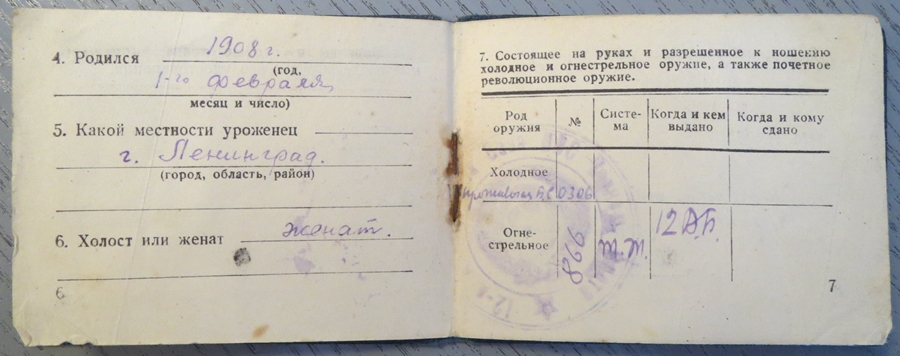 4. Родился 1908 г.
(год,
1-го февраля
месяц и число)
5. Какой местности уроженец
г. Ленинград.
(город, область, район)
6. Холост или женат женат.
6
7. Состоящее на руках и разрешенное к ношению
холодное и огнестрельное оружие, а также почетное
революционное оружие.
Род оружия № Систе-ма Когда и кем выдано Когда и кому сдано
Холодное
0306
Огне-стрельное 866 Т.Т. 12
7